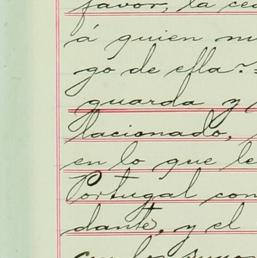 favor, la ced
á quien m
go de ella?
guarda y
lacionado,
en lo que le
Portugal con
dante, y el